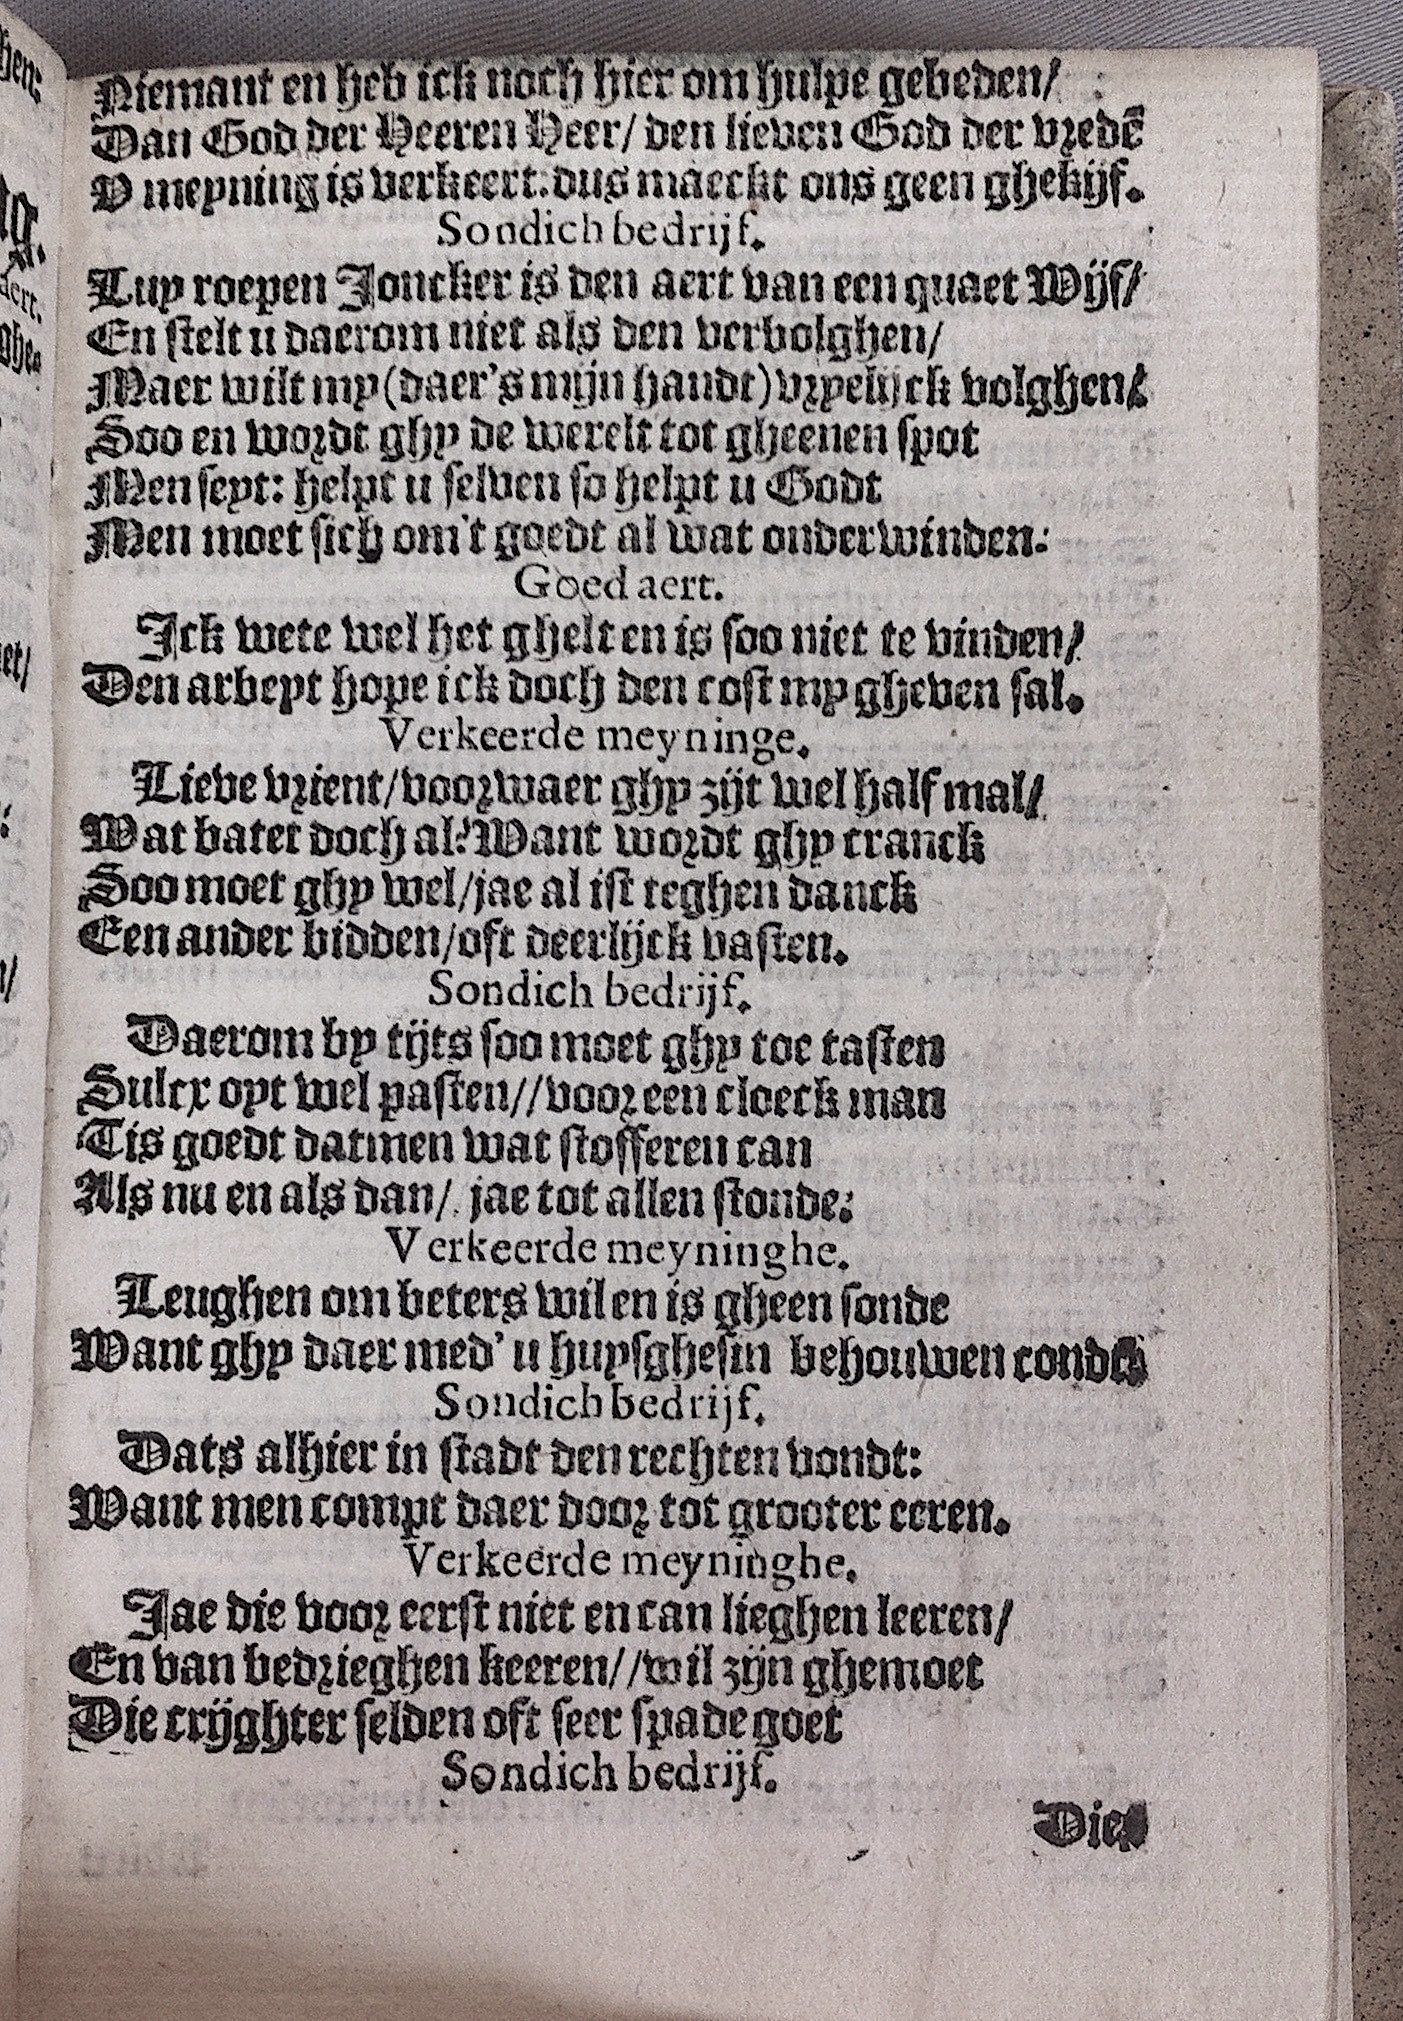 Niemant en heb ick noch hier om hulpe gebeden/
Dan God der Heeren Heer/ den lieven God der vredē
V meyning is verkeert: dus maeckt ons geen ghekijf.
Sondich bedrijf.
Luy roepen Joncker is den aert van een quaet Wijf/
En stelt u daerom niet als den verbolghen/
Maer wilt my (daer's mijn handt) vrpelijck volghen/
Soo en wordt ghy de werelt tot gheenen spot
Men seyt: helpt u selven so helpt u Godt
Men moet sich om't goedt al wat onderwinden:
Goed aert.
Ick wete wel het ghelt en is soo niet te vinden/
Den arbeyt hope ick doch den cost my gheven sal.
Verkeerde meyninge.
Lieve vrient/ voorwaer ghy zijt wel half mal/
Wat batet doch al? Want wordt ghy cranck
Soo moet ghy wel/ jae al ist teghen danck
Een ander bidden/ oft deerlijck vasten.
Sondich bedrijf.
Daerom by tijts soo moet ghy toe tasten
Sulcx opt wel pasten// voor een cloeck man
Tis goedt datmen wat stofferen can
Als nu en als dan/ jae tot allen stonde:
Verkeerde meyninghe.
Leughen om beters wil en is gheen sonde
Want ghy daer med' u huysghesin behouwen conde
Sondich bedrijf.
Dats alhier in stadt den rechten vondt:
Want men compt daer door tot grooter eeren.
Verkeerde meyninghe.
Jae die voor eerst niet en can lieghen leeren/
En van bedrieghen keeren// wil zijn ghemoet
Die crijghter selden oft seer spade goet
Sondich bedrijf.
Die